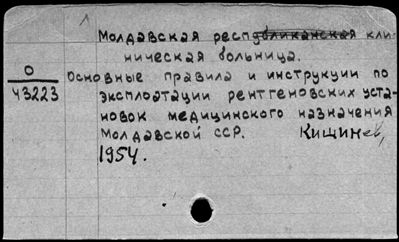 1
Молдавская республиканская кли-
ническая больница.
О
43223
Основные правила и инструкции по
эксплоатации рентгеновских уста-
новок медицинского назначения
Молдавской ССР. Кишинев,
1954.